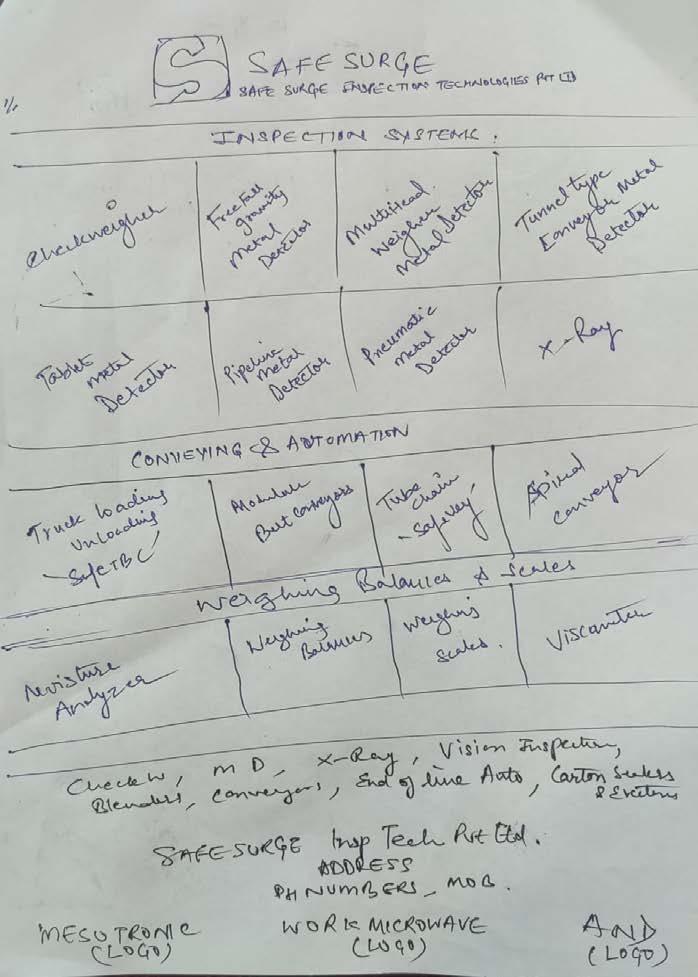 S SAFE SURGE
SAFE SURGE INSPECTION TECHNOLOGIES PVT LTD
INSPECTION SYSTEMS.
Checkweigher
Free Fall
gravity
Metal
Detector
MultiHead
Weigher
Metal Detector
Tunnel type
Conveyor Metal
Detector
Tablet
Metal
Detector
Pipeline
Metal
Detector
Pneumatic
Metal
Detector
X-Ray
CONVEYING & AUTOMATION
Truck loading
Unloading
SafeTBC
Modular
Belt conveyors
Tube
chain
Safevey
Spiral
conveyor
Weighing Balances & Scales
Moisture
Analyzer
Weighing
Balances
Weighing
Scales.
Viscometer
CheckW, MD, X-Ray, Vision Inspection,
Blenders, Conveyors, End of line Auto, Carton Sealers
& Erectors
SAFE SURGE Insp Tech Pvt Ltd.
ADDRESS
PH NUMBERS - MOB.
MESUTRONIC
(LOGO)
WORK MICROWAVE
(LOGO)
AND
(LOGO)